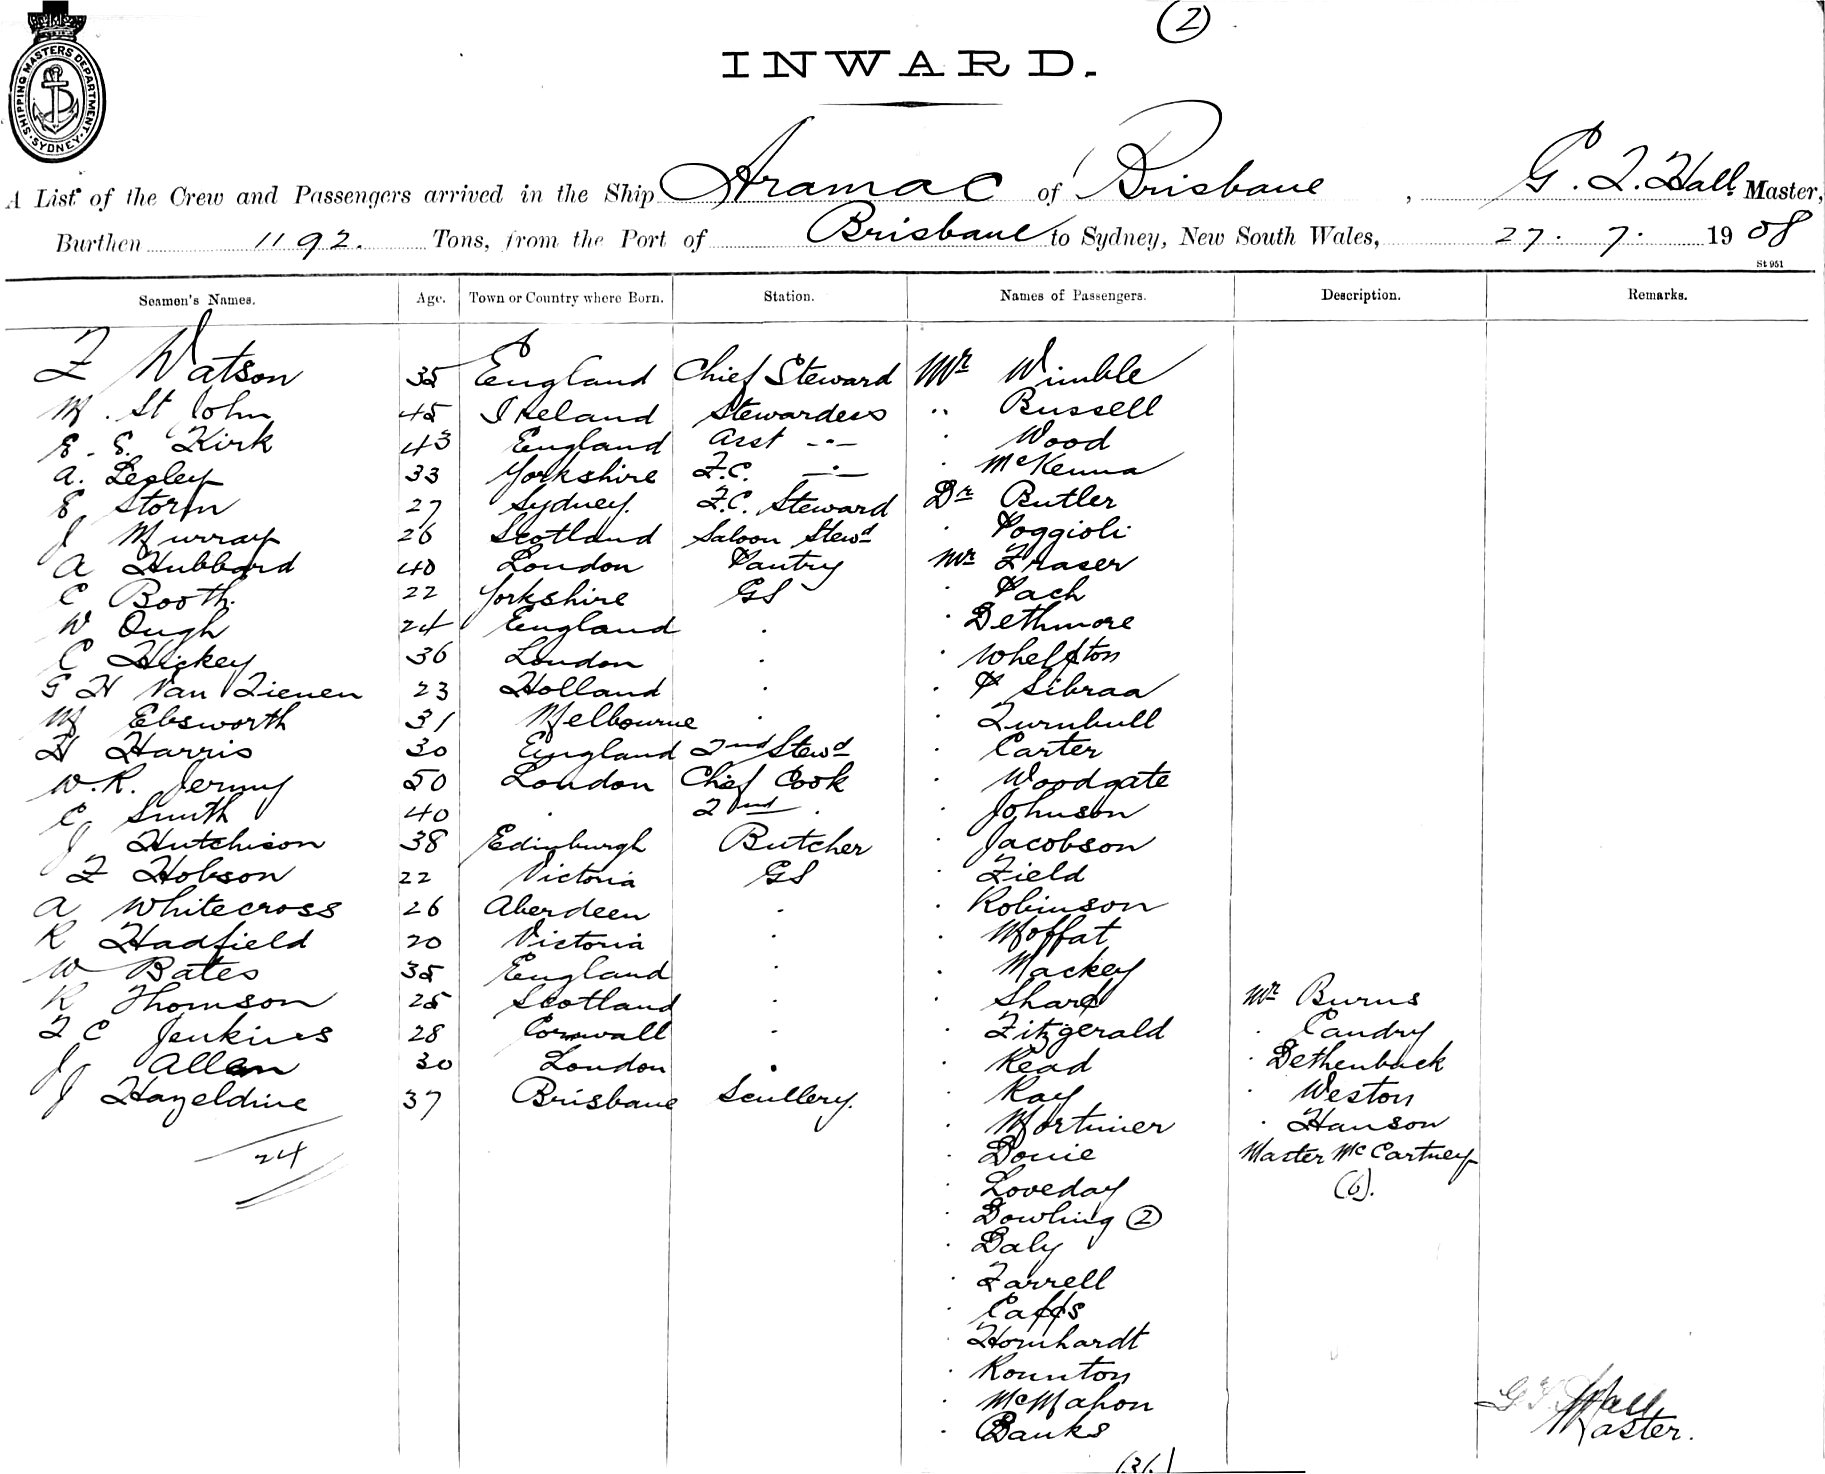 (2)
SHIPPING MASTERS DEPARTMENT · SYDNEY ·
INWARD.
A List of the Crew and Passengers arrived in the Ship Aramac of Brisbane, G. F. Hall Master,
Burthen 1192. Tons, from the Port of Brisbane to Sydney, New South Wales, 27. 7. 1908
St 951
Seamen's Names. Age. Town or Country where Born. Station. Names of Passengers. Description. Remarks.
F Watson 35 England Chief Steward Mr Wimble
M. St John 45 Ireland Stewardess " Bussell
E. E. Kirk 43 England Asst -"- · Wood
A. Lesley 33 Yorkshire F.C. -"- · McKenna
E Storm 27 Sydney. F.C. Steward Dr Butler
J Murray 26 Scotland Saloon Stewd · Poggioli
A Hubbard 40 London Pantry Mr Fraser
C Booth. 22 Yorkshire GS · Pach
W Ough 24 England · · Dethmore
C Hickey 36 London · · Whelston
G H Van Tienen 23 Holland · · P Sibraa
M Ebsworth 31 Melbourne · · Turnbull
H Harris 30 England 2nd Stewd · Carter
W. R. Jermy 50 London Chief Cook · Woodgate
C Smith 40 · 2nd · · Johnson
J Hutchison 38 Edinburgh Butcher · Jacobson
F Hobson 22 Victoria GS · Field
A Whitecross 26 Aberdeen · · Robinson
R Hadfield 20 Victoria · · Moffat
W Bates 35 England · · Mackey
R Thomson 25 Scotland · · Sharp Mr Burns
F C Jenkins 28 Cornwall · · Fitzgerald · Candry
J Allan 30 London · · Read · Dethenback
J Hazeldine 37 Brisbane Scullery. · Ray · Weston
· Mortimer · Hanson
24 · Douie Master McCartney
· Loveday (6).
· Dowling (2)
· Daly
· Farrell
· Hornhardt
· Rounton
· McMahon
· Banks
G F Hall
Master.
(36)